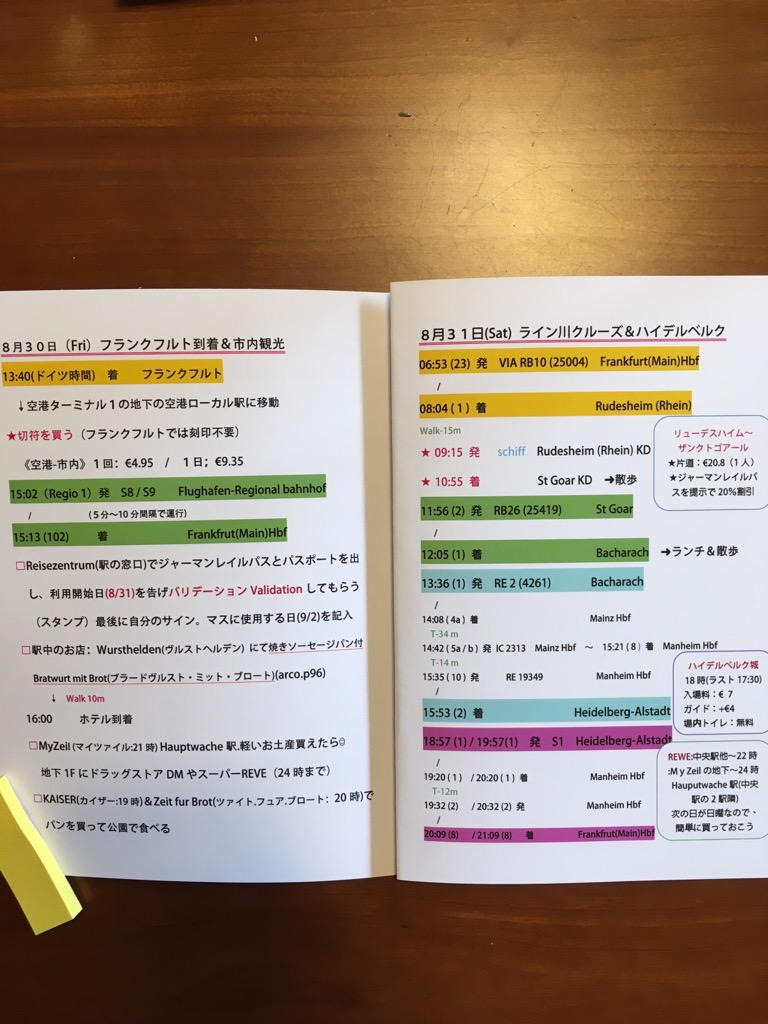 8月30日（Fri）フランクフルト到着＆市内観光
13:40(ドイツ時間) 着 フランクフルト
↓空港ターミナル1の地下の空港ローカル駅に移動
★切符を買う（フランクフルトでは刻印不要）
《空港-市内》1回：€4.95 / 1日；€9.35
15:02（Regio 1）発 S8 / S9 Flughafen-Regional bahnhof
/ （5分～10分間隔で運行）
15:13 (102) 着 Frankfrut(Main)Hbf
□Reisezentrum(駅の窓口)でジャーマンレイルパスとパスポートを出
し、利用開始日(8/31)を告げバリデーション Validation してもらう
（スタンプ）最後に自分のサイン。マスに使用する日(9/2)を記入
□駅中のお店：Wursthelden(ヴルストヘルデン) にて焼きソーセージパン付
Bratwurt mit Brot(ブラードヴルスト・ミット・ブロート)(arco.p96)
↓ Walk 10m
16:00 ホテル到着
□MyZeil (マイツァイル:21時) Hauptwache 駅.軽いお土産買えたら☺
地下1FにドラッグストアDMやスーパーREVE（24時まで）
□KAISER(カイザー:19時)＆Zeit fur Brot(ツァイト.フュア.ブロート：20時)で
パンを買って公園で食べる
8月31日(Sat) ライン川クルーズ＆ハイデルベルク
06:53 (23) 発 VIA RB10 (25004) Frankfurt(Main)Hbf
/
08:04 ( 1 ) 着 Rudesheim (Rhein)
Walk-15m
★ 09:15 発 schiff Rudesheim (Rhein) KD
★ 10:55 着 St Goar KD ➔散歩
11:56 (2) 発 RB26 (25419) St Goar
/
12:05 (1) 着 Bacharach ➔ランチ＆散歩
13:36 (1) 発 RE 2 (4261) Bacharach
/
14:08 ( 4a ) 着 Mainz Hbf
T-34 m
14:42 (5a / b ) 発 IC 2313 Mainz Hbf ～ 15:21 ( 8 ) 着 Manheim Hbf
T-14 m
15:35 ( 10 ) 発 RE 19349 Manheim Hbf
/
15:53 (2) 着 Heidelberg-Alstadt
18:57 (1) / 19:57(1) 発 S1 Heidelberg-Alstadt
/
19:20 ( 1 ) / 20:20 ( 1 ) 着 Manheim Hbf
T-12m
19:32 (2) / 20:32 (2) 発 Manheim Hbf
/
20:09 (8) / 21:09 (8) 着 Frankfrut(Main)Hbf
リューデスハイム～
ザンクトゴアール
★片道：€20.8（1人）
★ジャーマンレイルパ
スを提示で20%割引
ハイデルベルク城
18時(ラスト17:30)
入場料：€ 7
ガイド：+€4
場内トイレ：無料
REWE:中央駅他～22時
:M y Zeil の地下～24時
Hauputwache 駅(中央
駅の2駅隣)
次の日が日曜なので、
簡単に買っておこう